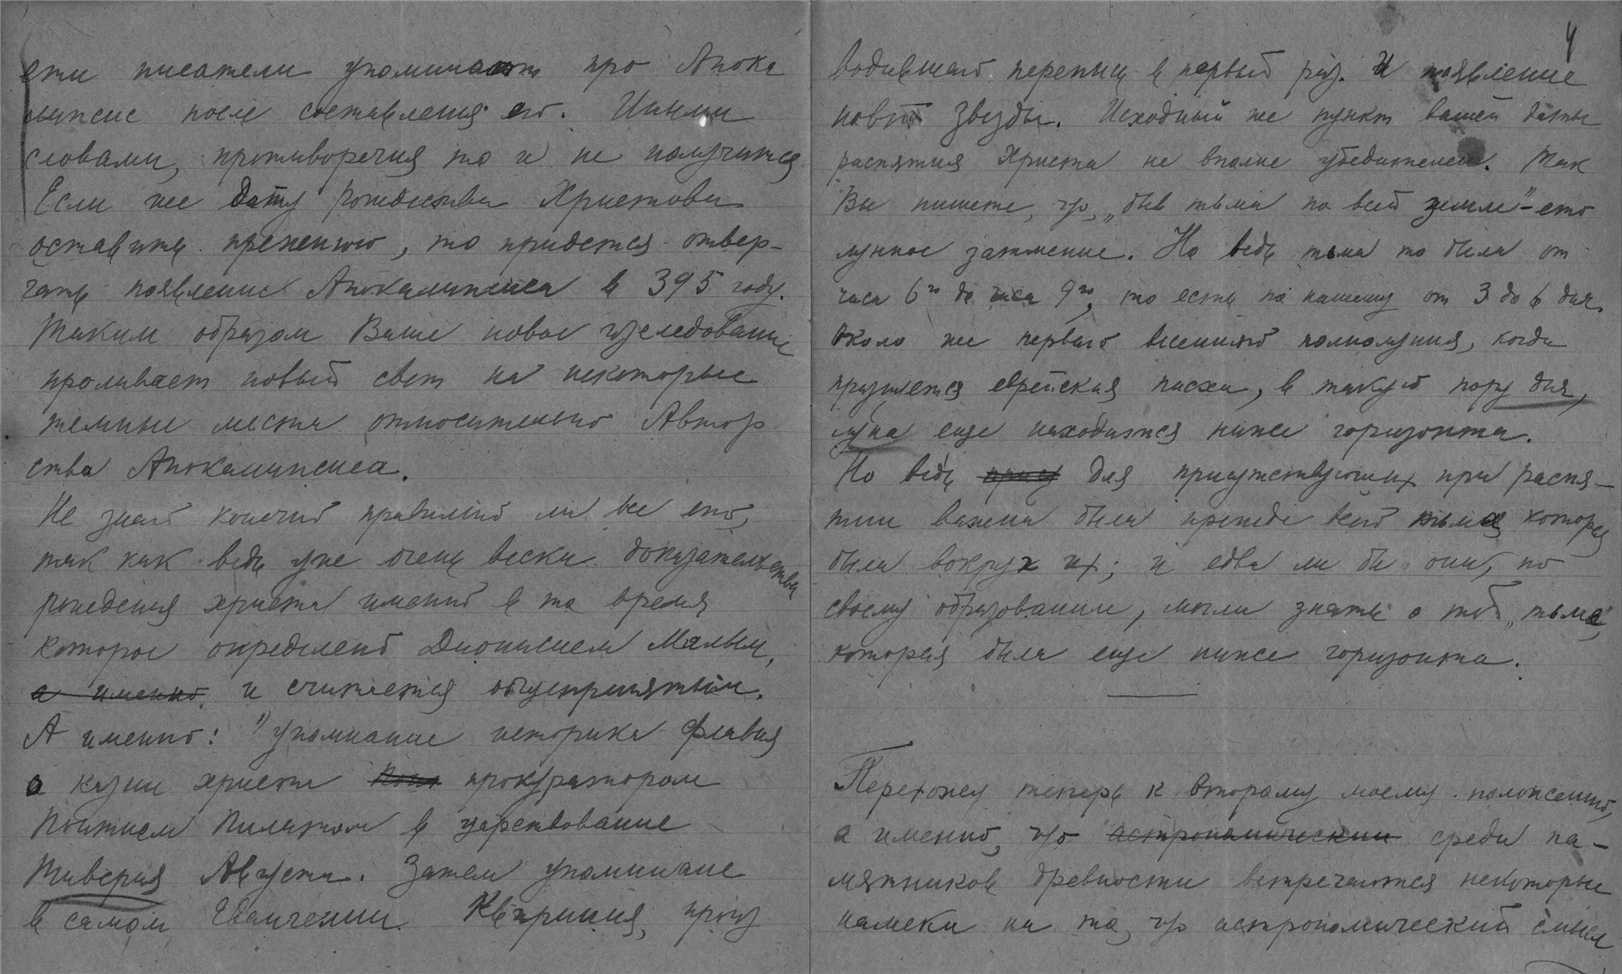 эти писатели упоминают про Апока
липсис после составления его. Иными
словами, противоречия то и не получится
Если же дату Рождества Христова
оставить прежнюю, то придется отвер-
гать появление Апокалипсиса в 395 году.
Таким образом Ваше новое исследование
проливает новый свет на некоторые
темные места относительно Автор
ства Апокалипсиса.
Не знаю конечно правильно ли все это,
так как ведь уже очень вески доказательства
рождения христа именно в то время
которое определено Дионисием Малым,
а именно и считается общепринятым.
А именно: "упоминание историка Флавия
о казни христа прокуратором
Понтием Пилатом в царствование
Тиверия Августа. Затем упоминание
в самом Евангелии Квириния, произ
4
водившего перепись в первый раз. И появление
новой звезды. Исходный же пункт вашей даты
распятия Христа не вполне убедителен. Так
Вы пишете, что "был тьма по всей земле" - это
лунное затмение. Но ведь тьма то была от
часа 6го до часа 9го, то есть по нашему от 3 до 6 дня.
Около же первого весеннего полнолуния, когда
празднется еврейская пасха, в такую пору дня,
луна еще находится ниже горизонта.
Но ведь для присутствующих при распя-
тии важна была прежде всего тьма которая
была вокруг их; и едва ли бы они, по
своему образованию, могли знать о той "тьме",
которая была еще ниже горизонта.
Перехожу теперь к второму моему положению,
а именно, что астрономический среди па-
мятников древности встречаются некоторые
намеки на то, что астрономический смысл